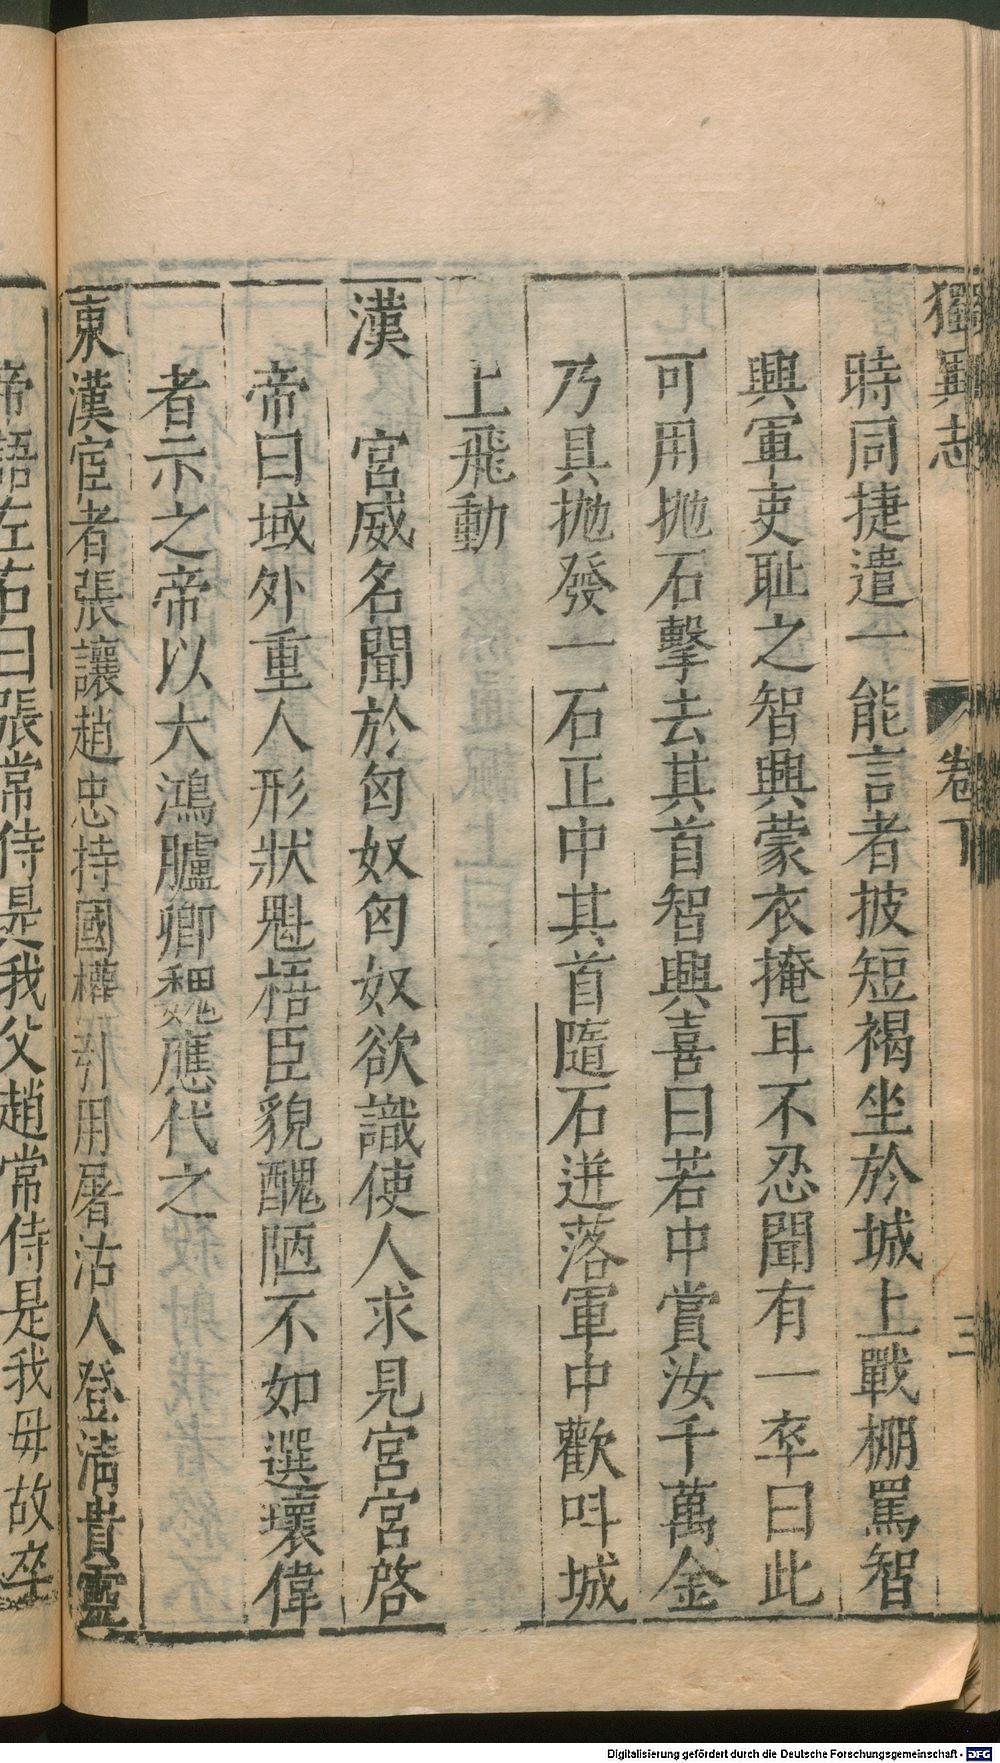 獨異志
卷下
三
時同捷遣一能言者披短褐坐於城上戰棚罵智
興軍吏耻之智興蒙衣掩耳不忍聞有一卒曰此
可用抛石擊去其首智興喜曰若中賞汝千萬金
乃具抛發一石正中其首隨石迸落軍中歡呌城
上飛動
漢　宮威名聞於匈奴匈奴欲識使人求見宮宮啓
帝曰域外重人形狀魁梧臣貌醜陋不如選壞偉
者示之帝以大鴻臚卿魏應代之
東漢宦者張讓趙忠持國權引用屠沽人登滿貴靈
帝語左右曰張常侍是我父趙常侍是我母故卒
Digitalisierung gefördert durch die Deutsche Forschungsgemeinschaft - DFG